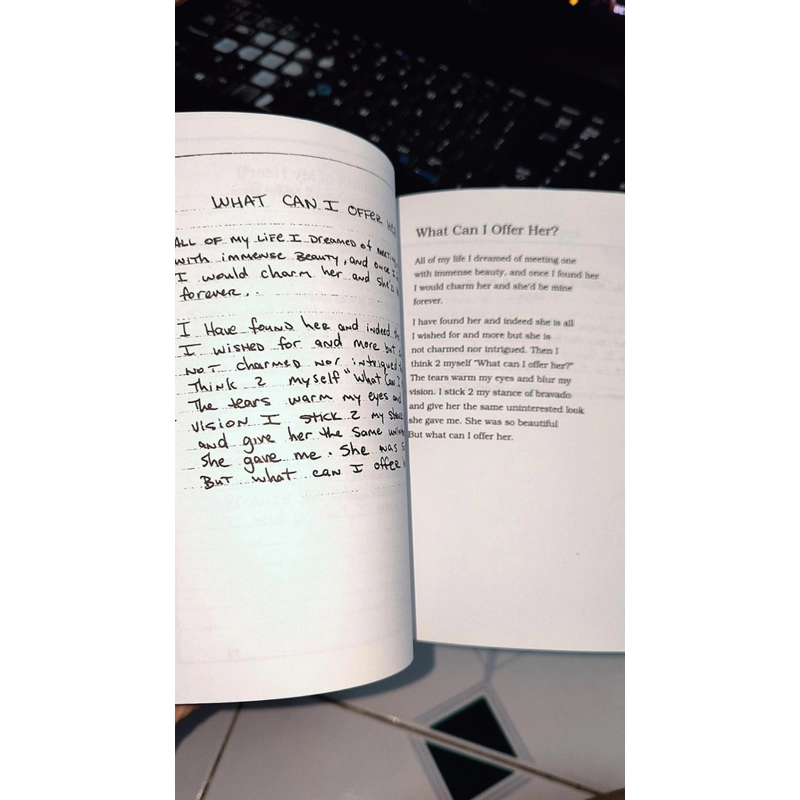 WHAT CAN I OFFER
ALL OF MY LIFE I DREAMED of
WITH IMMENSE BEAUTY, AND ONCE I
I would charm her and she'd
forever.
I HAVE found her and indeed
I WISHED for and more but
NOT CHARMED NOR intrigued
Think 2 myself "What Can I
The tears warm my eyes and
VISION I STICK 2 my
and give her the same
She gave me. She was
BUT what can I offer
What Can I Offer Her?
All of my life I dreamed of meeting one
with immense beauty, and once I found her
I would charm her and she'd be mine
forever.
I have found her and indeed she is all
I wished for and more but she is
not charmed nor intrigued. Then I
think 2 myself "What can I offer her?"
The tears warm my eyes and blur my
vision. I stick 2 my stance of bravado
and give her the same uninterested look
she gave me. She was so beautiful
But what can I offer her.